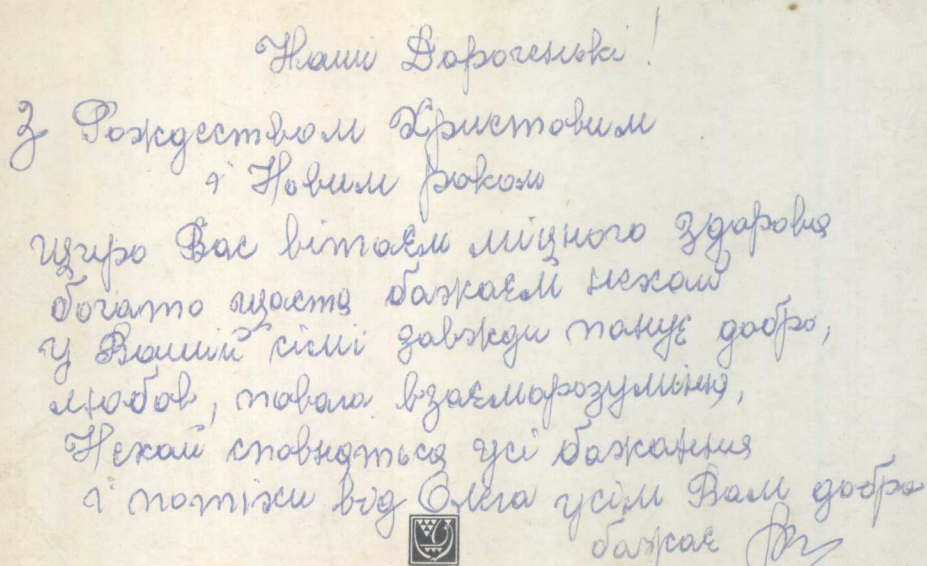 Наши Дорогенькі!
З Рождеством Христовим
і Новим роком
Щиро Вас вітаєм міцного здоровя
богато щастя бажаєм нехай
у Вашій сімі завжди панує добро,
любов, повага взаєморозуміння,
Нехай сповняться усі бажання
і потіхи від Олега усім Вам добра
бажає